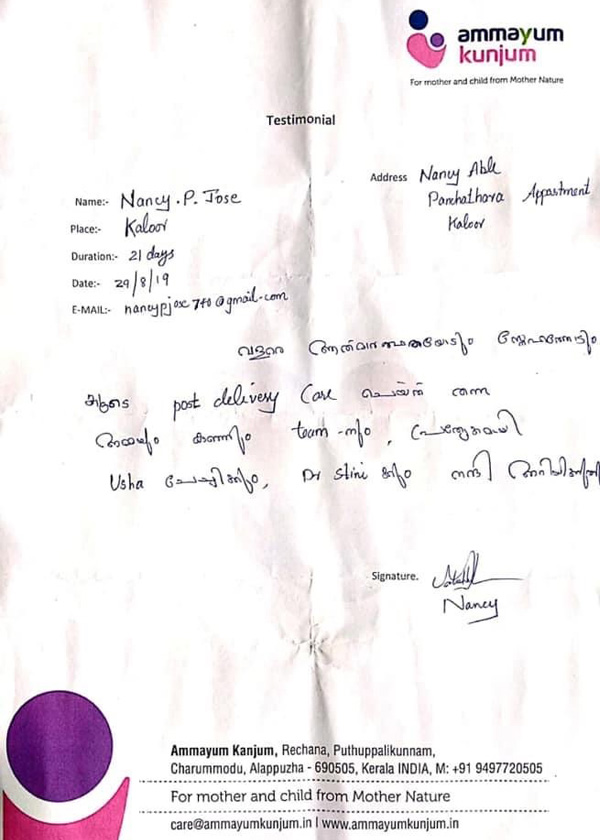 ammayum
kunjum
For mother and child from Mother Nature
Testimonial
Address Nancy Able
Panchathara Appastment
Kaloor
Name:- Nancy.P. Jose
Place:- Kaloor
Duration:- 21 days
Date:- 29/8/19
E-MAIL:- nancypjose740@gmail.com
വളരെ ആത്മാർത്ഥതയോടും സ്നേഹത്തോടും
കൂടെ post delivery Care ചെയ്ത് തന്ന
അമ്മയും കുഞ്ഞും team-നും, പ്രത്യേകമായി
Usha ചേച്ചിക്കും, Dr Stini ക്കും നന്ദി അറിയിക്കുന്നു
Signature.
Nancy
Ammayum Kanjum, Rechana, Puthuppalikunnam,
Charummodu, Alappuzha - 690505, Kerala INDIA, M: +91 9497720505
For mother and child from Mother Nature
care@ammayumkunjum.in | www.ammayumkunjum.in